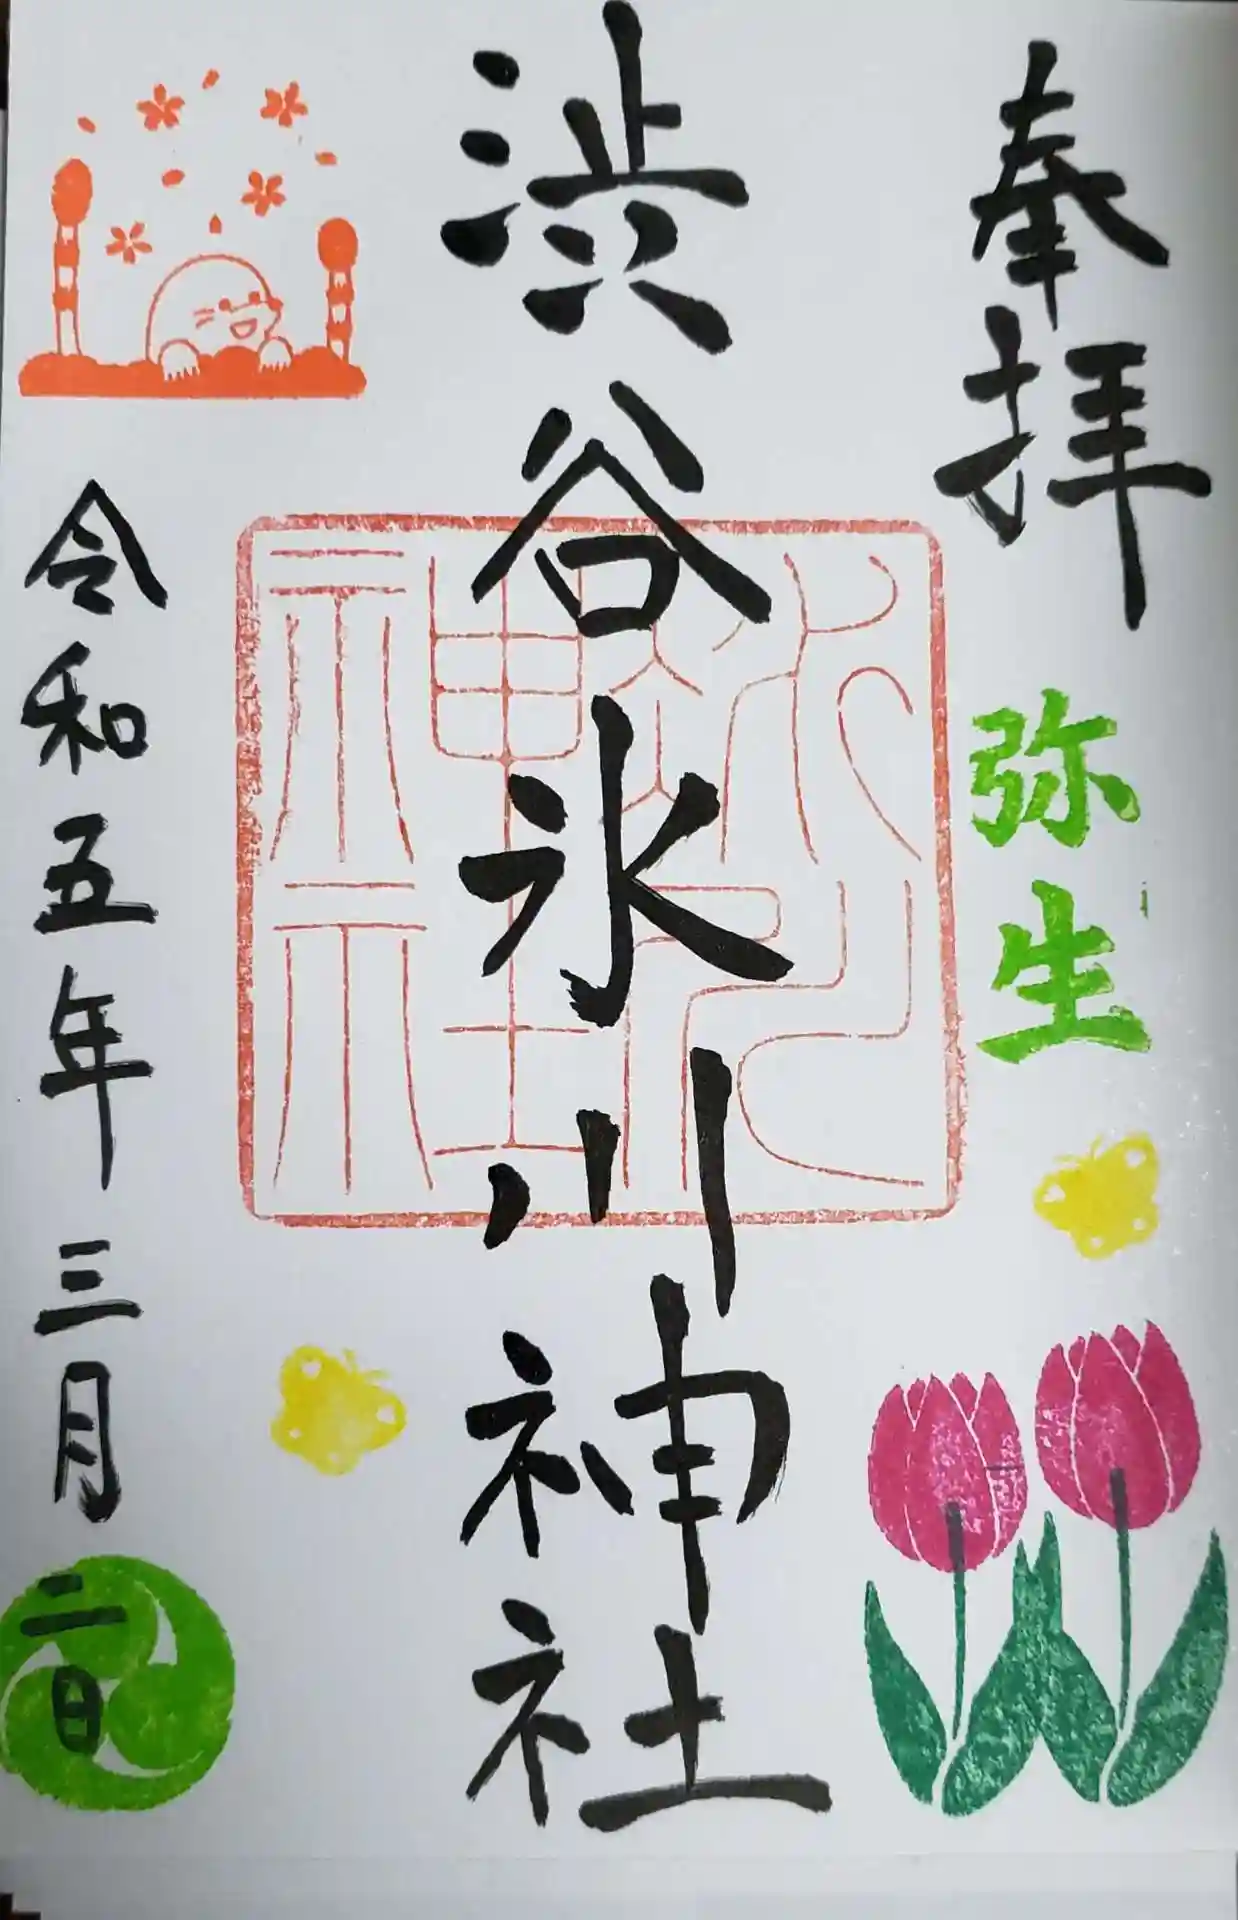 奉拝
弥生
渋谷氷川神社
令和五年三月二日